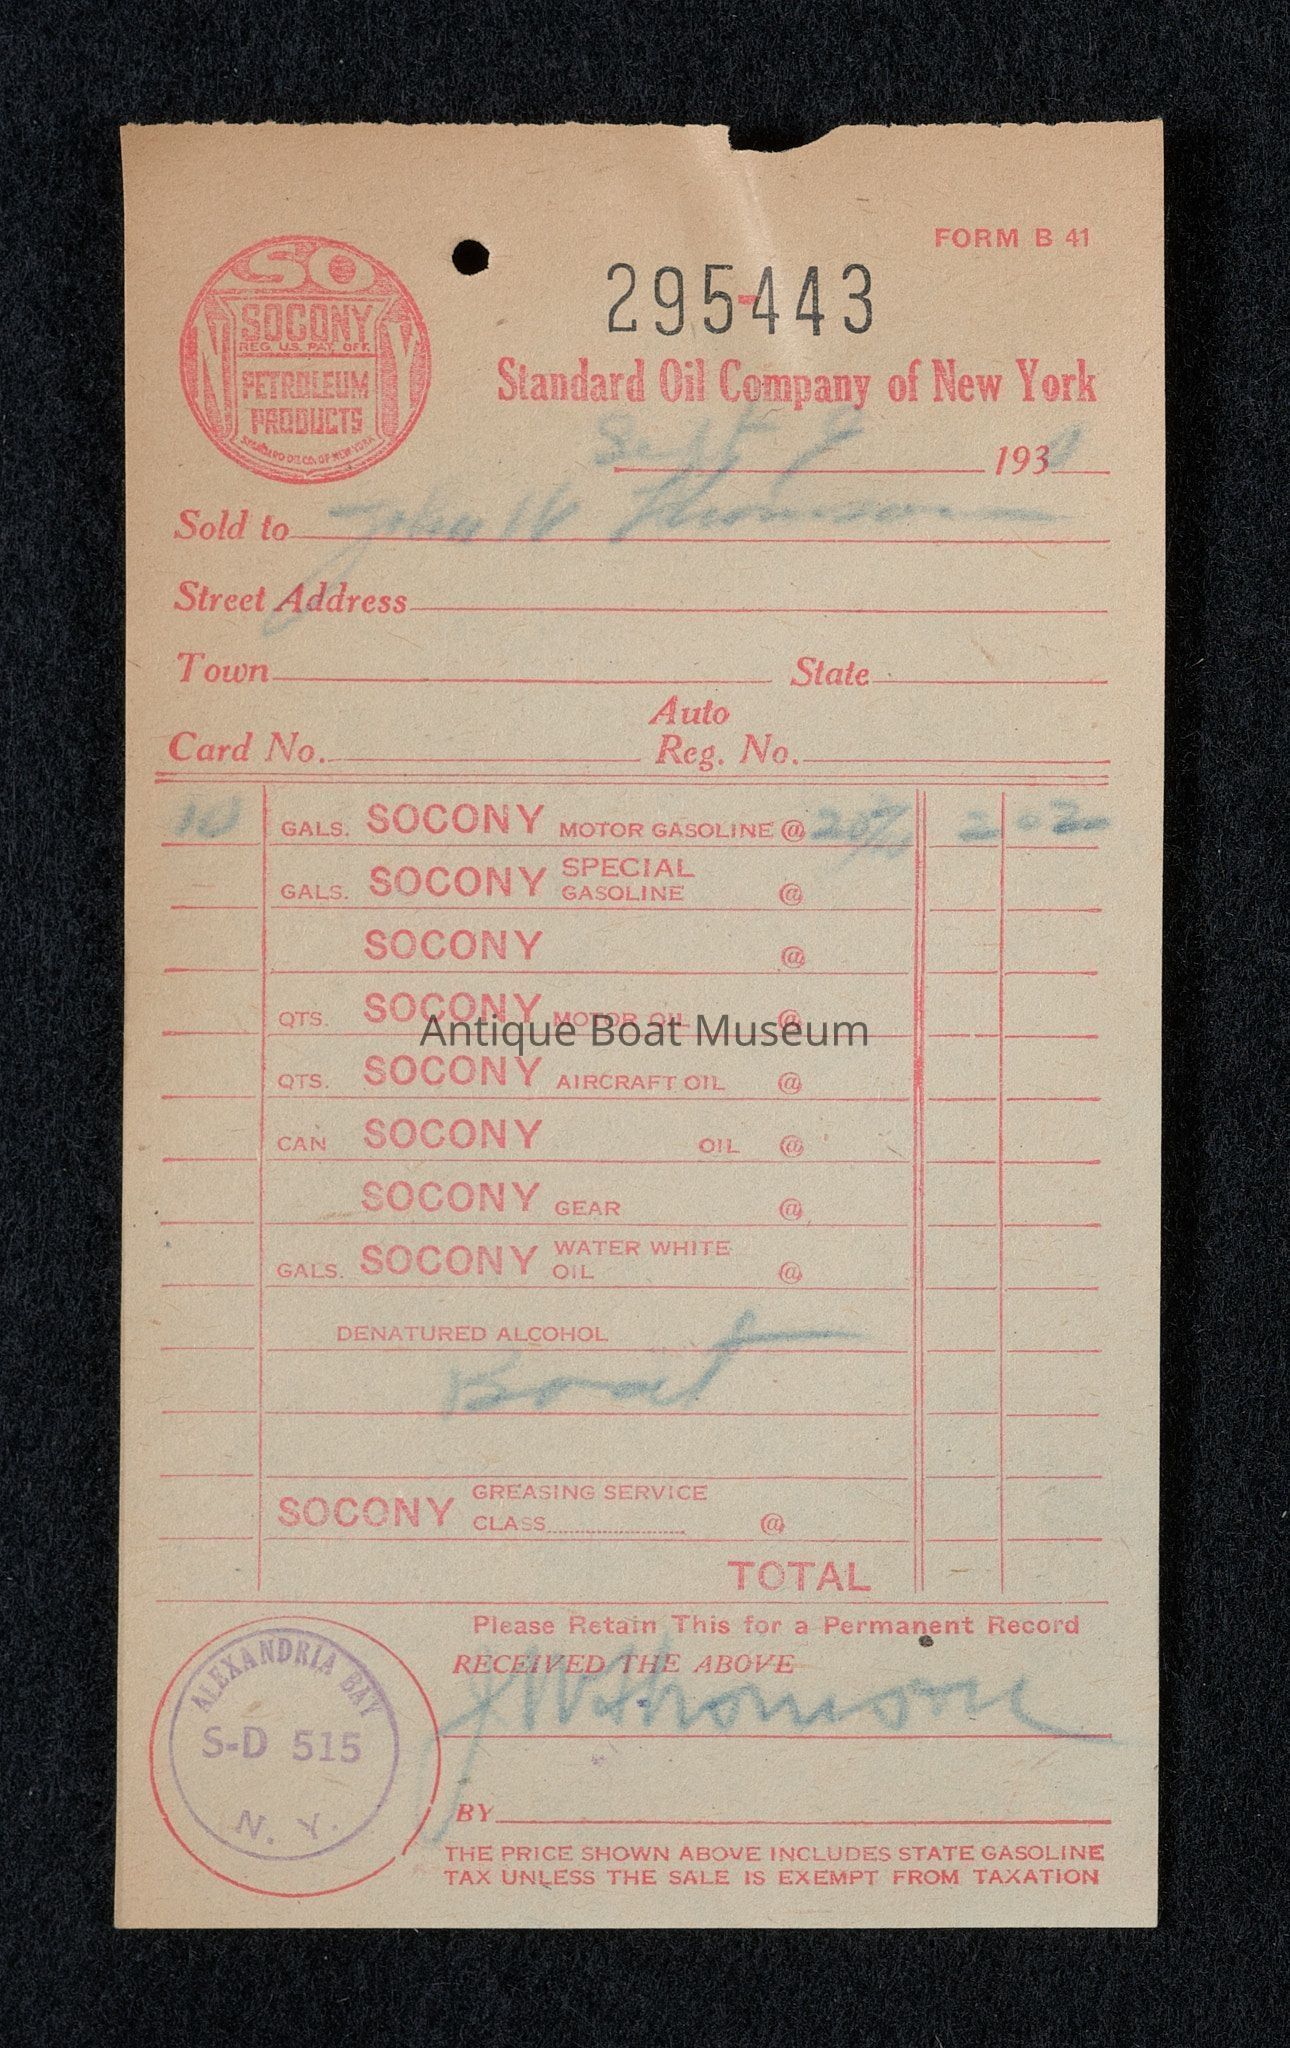 FORM B 41
SO
SOCONY
REG. U.S. PAT. OFF.
PETROLEUM
PRODUCTS
STANDARD OIL CO. OF NEW YORK
295443
Standard Oil Company of New York
Sept 9 193
Sold to John W Thomson
Street Address
Town State
Auto
Card No. Reg. No.
10 GALS. SOCONY MOTOR GASOLINE @ 2 02
GALS. SOCONY SPECIAL GASOLINE @
SOCONY @
QTS. SOCONY MOTOR OIL @
Antique Boat Museum
QTS. SOCONY AIRCRAFT OIL @
CAN SOCONY OIL @
SOCONY GEAR @
GALS. SOCONY WATER WHITE OIL @
DENATURED ALCOHOL
Boat
SOCONY GREASING SERVICE
CLASS @
TOTAL
Please Retain This for a Permanent Record
RECEIVED THE ABOVE
J W Thomson
ALEXANDRIA BAY
S-D 515
N. Y.
BY
THE PRICE SHOWN ABOVE INCLUDES STATE GASOLINE
TAX UNLESS THE SALE IS EXEMPT FROM TAXATION